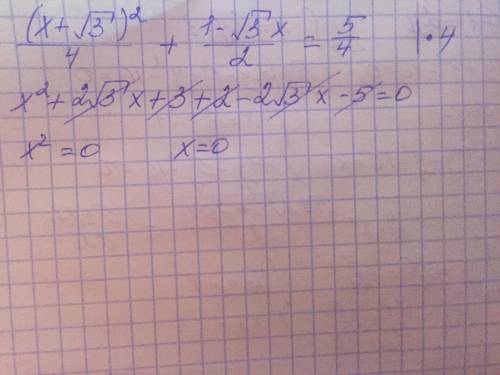 (x+√3)²/4 + (1-√3x)/2 = 5/4 |·4
x²+2√3x+3+2-2√3x-5=0
x²=0 x=0